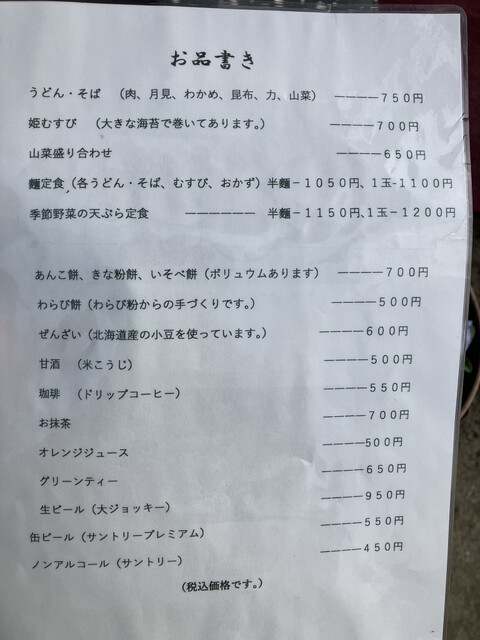 お品書き
うどん・そば （肉、月見、わかめ、昆布、力、山菜） ――――７５０円
姫むすび （大きな海苔で巻いてあります。） ――――７００円
山菜盛り合わせ ――――６５０円
麵定食（各うどん・そば、むすび、おかず）半麵－１０５０円、１玉－１１００円
季節野菜の天ぷら定食 ―――――― 半麵－１１５０円、１玉－１２００円
あんこ餅、きな粉餅、いそべ餅（ボリュウムあります） ――――７００円
わらび餅（わらび粉からの手づくりです。） ――――５００円
ぜんざい（北海道産の小豆を使っています。） ――――６００円
甘酒 （米こうじ） ――――５００円
珈琲 （ドリップコーヒー） ――――５５０円
お抹茶 ――――７００円
オレンジジュース ――――５００円
グリーンティー ――――６５０円
生ビール（大ジョッキー） ――――９５０円
缶ビール（サントリープレミアム） ――――５５０円
ノンアルコール（サントリー） ――――４５０円
（税込価格です。）